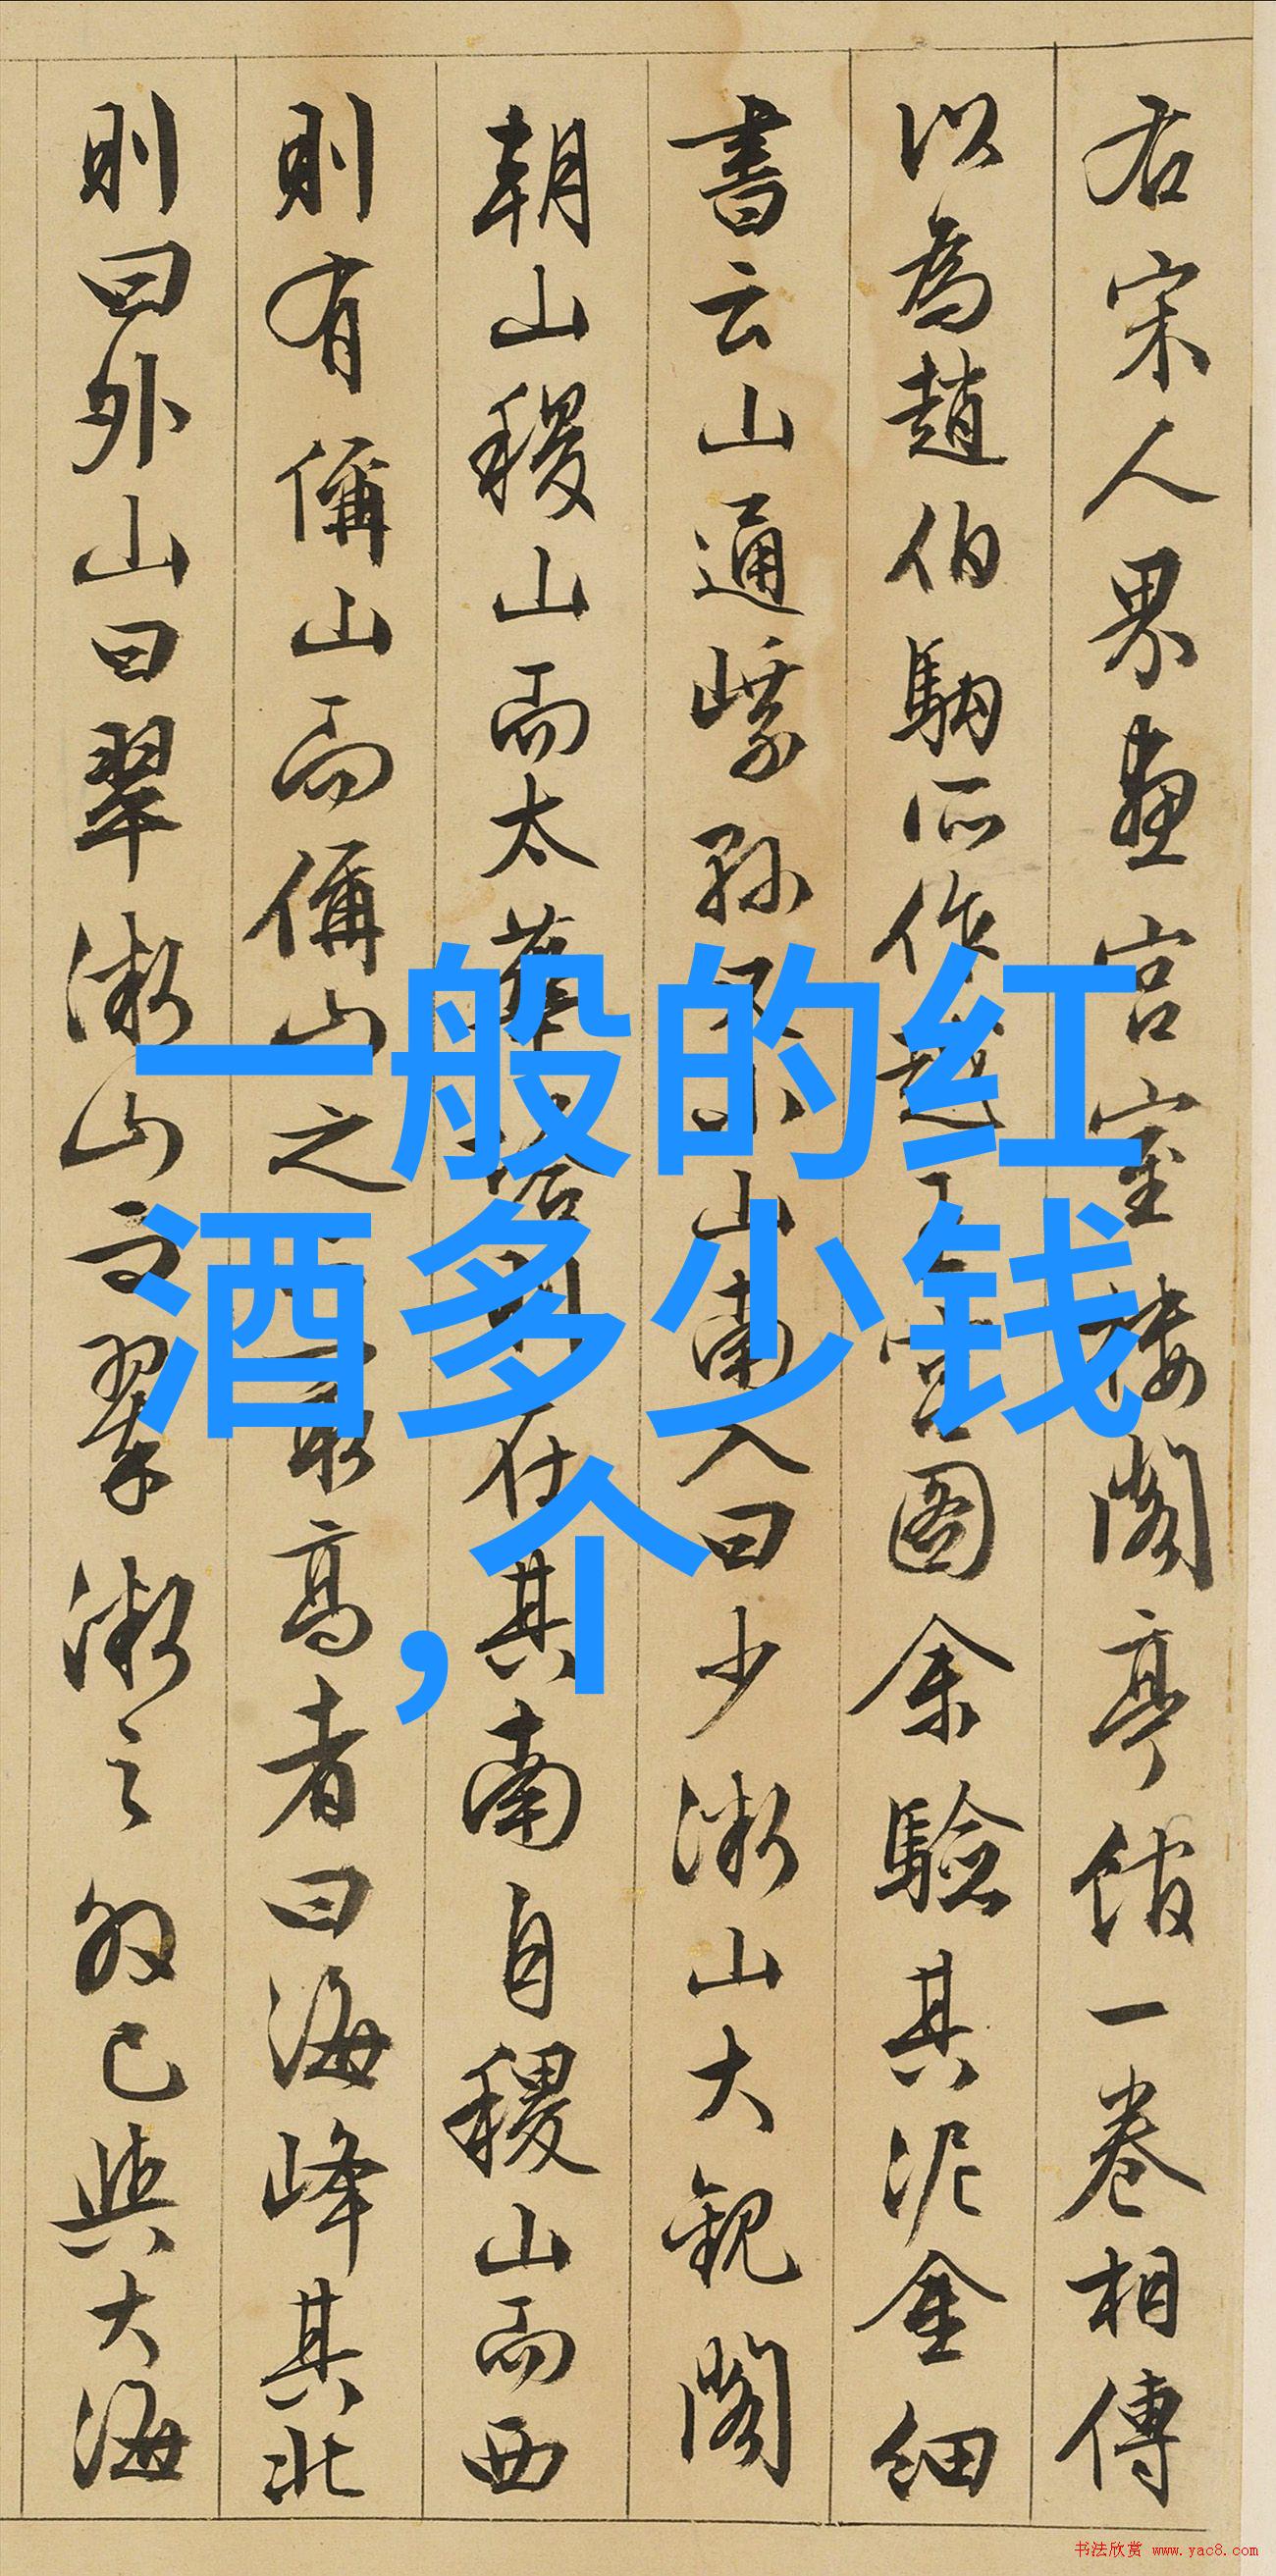 右宋人界畫宮室樓閣亭館一卷相傳
以為趙伯駒所作越王宮圖余驗其泥金細
書云山通山南入曰少微山大觀閣
朝山稷山而太其南自稷山而西
則有偁山而偁山之最高者曰海峰其北
則曰外山曰翠微山而翠微之外已與大海
一般的红
酒多少钱
,个
书法欣赏 www.yac8.com